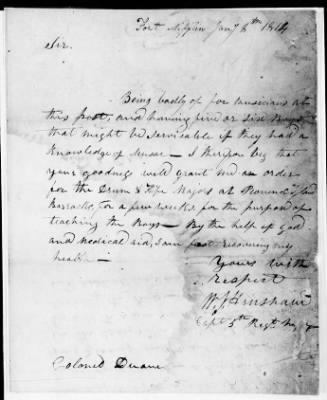 Fort Mifflin Jany 6th 1814
Sir.
Being badly of for musicians at
this post, and having five or six Boys
that might be Servicable if they had
Knowledge of — I therefore beg that
your goodness will grant me an order
for the Drum & Fife Majors at
Barracks, for a few weeks for the purpose of
teaching the Boys — By the help of God
and medical aid, I am fast recovering my
health —
Yours with
respect
Capt 5th Regt
Colonel Duane